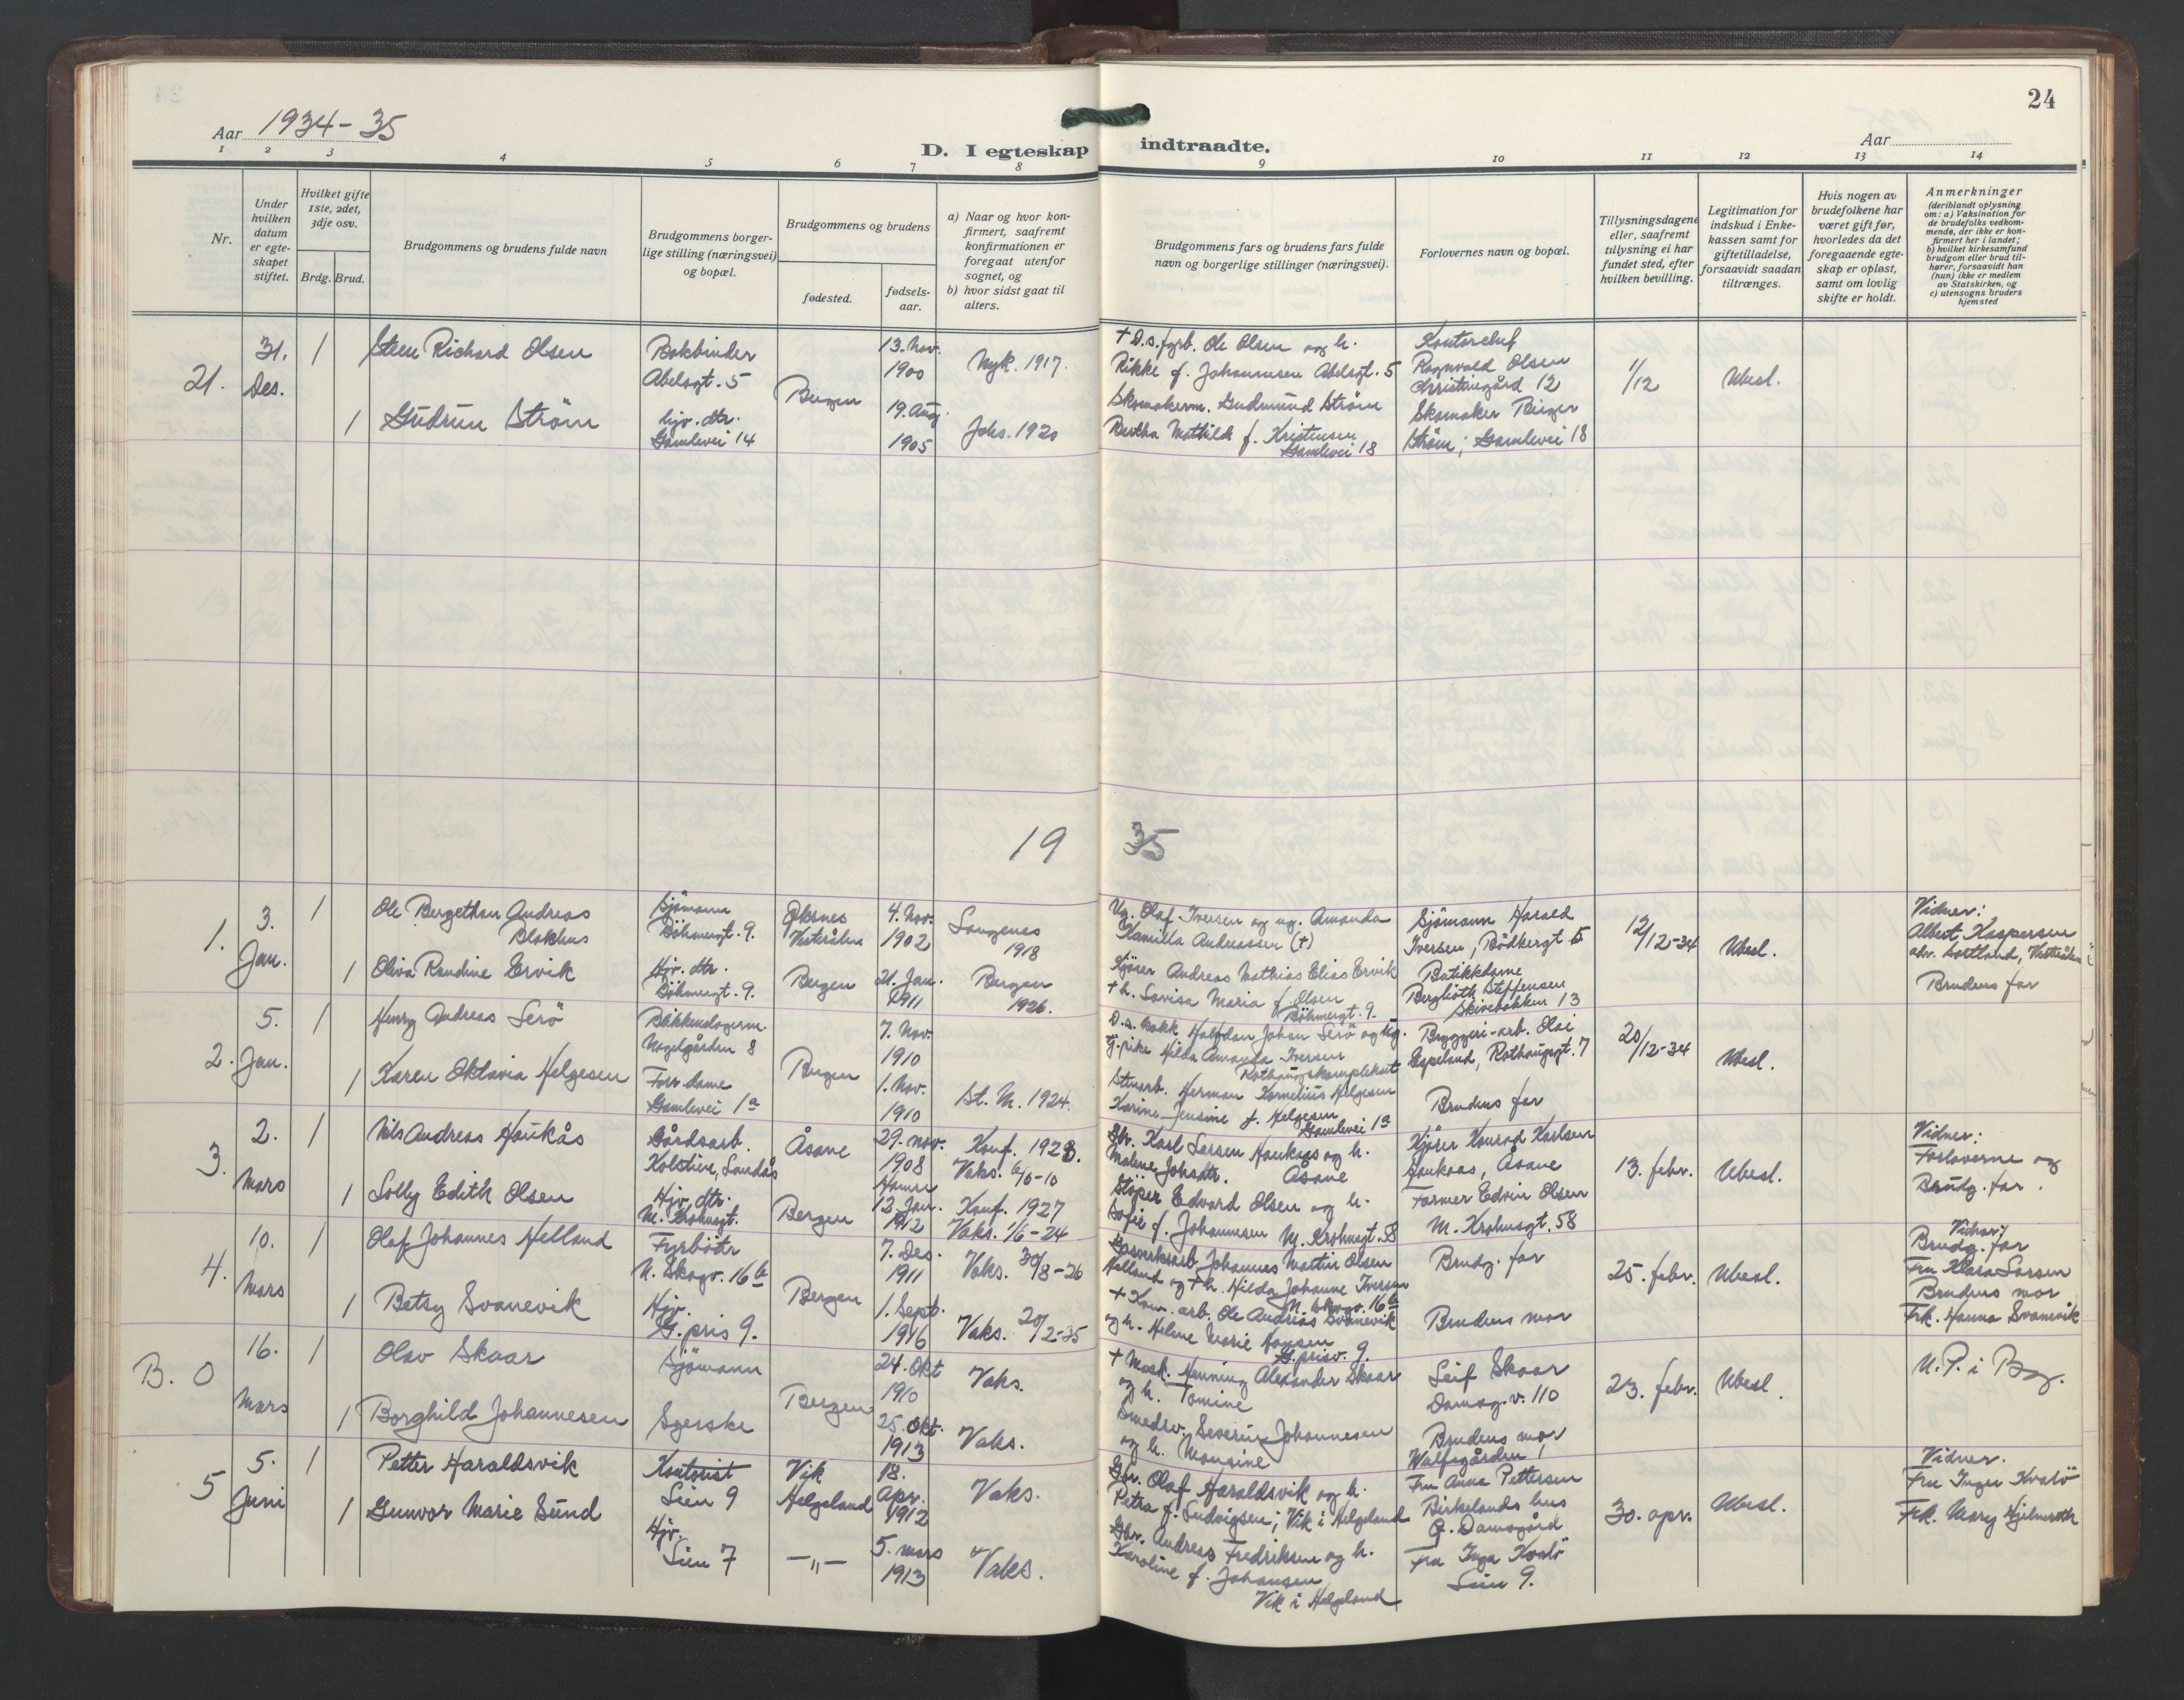 24
Aar 1934-35
D. I egteskap indtraadte.
Aar
1 2 3 4 5 6 7 8 9 10 11 12 13 14
Nr.
Under
hvilken
datum
er egte-
skapet
stiftet.
Hvilket gifte
1ste, 2det,
3dje osv.
Brdg. Brud.
Brudgommens og brudens fulde navn
Brudgommens borger-
lige stilling (næringsvei)
og bopæl.
Brudgommens og brudens
fødested.
fødsels-
aar.
a) Naar og hvor kon-
firmert, saafremt
konfirmationen er
foregaat utenfor
sognet, og
b) hvor sidst gaat til
alters.
Brudgommens fars og brudens fars fulde
navn og borgerlige stillinger (næringsvei).
Forlovernes navn og bopæl.
Tillysningsdagene
eller, saafremt
tillysning ei har
fundet sted, efter
hvilken bevilling.
Legitimation for
indskud i Enke-
kassen samt for
giftetilladelse,
forsaavidt saadan
tiltrænges.
Hvis nogen av
brudefolkene har
været gift før,
hvorledes da det
foregaaende egte-
skap er opløst,
samt om lovlig
skifte er holdt.
Anmerkninger
(deriblandt oplysning
om: a) Vaksination for
de brudefolks vedkom-
mende, der ikke er kon-
firmert her i landet;
b) hvilket kirkesamfund
brudgom eller brud til-
hører, forsaavidt han
(hun) ikke er medlem
av Statskirken, og
c) utensogns bruders
hjemsted
21.
31.
Des.
1
Steen Richard Olsen
Bokbinder
Abelsgt. 5
Bergen
13. Nov.
1900
Nyk. 1917.
† D.s. fyrb. Ole Olsen og h.
Rikke f. Johannesen Abelsgt. 5
Kontorchef
Ragnvald Olsen
Christinegård 12
1/12
Ubesl.
1
Gudrun Strøm
hjv. dtr.
Gamlevei 14
19. Aug.
1905
Johs. 1920
Skomakerm. Gudmund Strøm
Bertha Mathilde f. Kristensen
Gamlevei 18
Skomaker Birger
Strøm; Gamlevei 18
19 35
1.
3.
Jan.
1
Ole Bergethon Andreas
Blokhus
Sjömann
Böhmergt. 9.
Öksnes
Vesterålen
4. Nov.
1902
Langenes
1918
Ug. Olaf Iversen og ug. Amanda
Kamilla Andreassen (†)
Sjömann Harald
Iversen, Bödkergt 5
12/12-34
Ubesl.
Vidner:
Albert Kaspersen
adr. Sortland, Vesterålen
Brudens far
1
Oliva Randine Ervik
Hjv. dtr.
Böhmergt. 9.
Bergen
21. Jan.
1911
Bergen
1926.
Kjörer Andreas Mathias Elias Ervik
† h. Lovisa Maria f. Olsen
Böhmergt. 9.
Butikkdame
Bergliöth Steffensen
Skivebakken 13
2.
5.
Jan.
1
Henry Andreas Serö
Blikkenslagerm.
Nagelgården 8
Bergen
7. Nov.
1910
D.s. kokk Halfdan Johan Serö og ug.
tj. pike Hilda Amanda Iversen
Rothaugskomplekset
Bryggeri-arb. Olai
Espeland, Rothaugsgt. 7
20/12-34
Ubesl.
1
Karen Oktavia Helgesen
Forr. dame
Gamlevei 1a
1. Nov.
1910
St. M. 1924.
Stuarb. Herman Kornelius Helgesen
Karine Jensine f. Helgesen
Gamlevei 1a
Brudens far
3.
2.
Mars
1
Nils Andreas Haukås
Gårdsarb.
Kolstien, Landås
Åsane
29. nov.
1908
Konf. 1923.
Vaks. 6/6-10
Gbr. Karl Larsen Haukaas og h.
Malene Johsdtr. Åsane
Kjörer Konrad Karlsen
Haukaas, Åsane
13. febr.
Ubesl.
Vidner:
Forloverne og
Brudg. far.
1
Solly Edith Olsen
Hjv. dtr.
M. Krohnsgt.
Bergen
12. Jan.
1912
Konf. 1927
Vaks. 1/6-24
Stöper Edvard Olsen og h.
Sofie f. Johannesen M. Krohnsgt. 58
Former Edvin Olsen
M. Krohnsgt. 58
4.
10.
Mars
1
Olaf Johannes Helland
Fyrböter
N. Skogv. 16b
Bergen
7. Des.
1911
Vaks. 30/8-26
Gasverksarb. Johannes Martin Olsen
Helland og † h. Hilda Johanne Iversen
N. Skogv. 16b
Brudg. far
25. febr.
Ubesl.
Vidner:
Brudg. far
Fru Klara Larsen
Brudens mor
Frk. Hanna Svanevik
1
Betsy Svanevik
Hjv.
G. pris 9.
1. Sept.
1916
Vaks. 20/2-35
† Kom. arb. Ole Andreas Svanevik
og h. Helene Marie Hansen
G. prisv. 9.
Brudens mor
B. 0
16.
Mars
1
Olav Skaar
Sjömann
Bergen
24. Okt
1910
Vaks.
† Mask. Henning Alexander Skaar
og h. Tomine
Leif Skaar
Damsg. v. 110
23. febr.
Ubesl.
U. P. i Bg.
1
Borghild Johannesen
Syerske
25. Okt.
1913
Vaks.
Smedsv. Severin Johannesen
og h. Monsine
Brudens mor
Wulfsgården
5
5.
Juni
1
Petter Haraldsvik
Kontorist
Lien 9
Vik
Helgeland
18.
Apr.
1912
Vaks.
Gbr. Olaf Haraldsvik og h.
Petra f. Ludvigsen; Vik i Helgeland
Fru Anna Pettersen
Birkelands hus
G. Damsgård
30. apr.
Ubesl.
Vidner.
Fru Inger Kvalö
Frk. Mary Hjelmseth
1
Gunvor Marie Sund
Hjv.
Lien 7
— „ —
5. mars
1913
Vaks.
Gbr. Andreas Fredriksen og h.
Karoline f. Johansen
Vik i Helgeland
Fru Inga Kvalö
Lien 9.